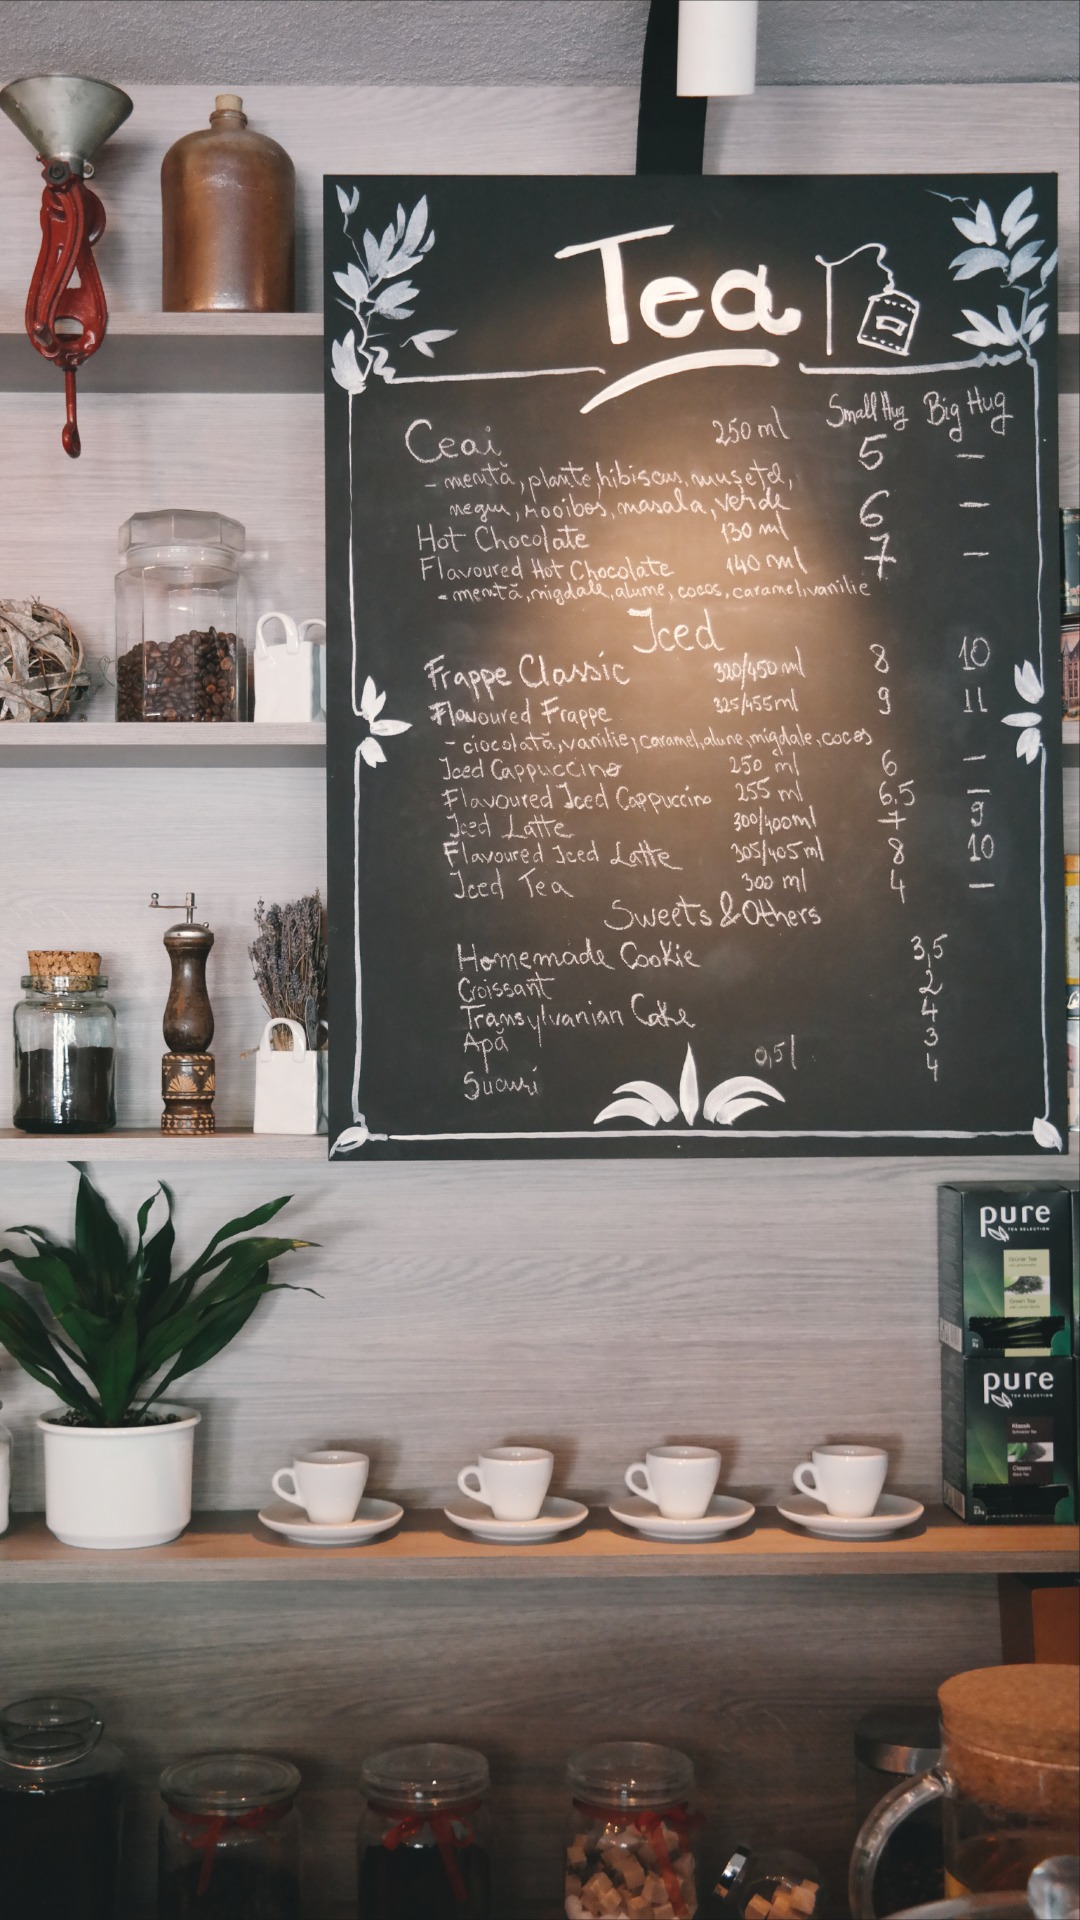 Tea
Small Hug Big Hug
Ceai 250 ml 5 —
- mentă, plante, hibiscus, mușețel,
negru, rooibos, masala, verde
Hot Chocolate 130 ml 6 —
Flavoured Hot Chocolate 140 ml 7 —
- mentă, migdale, alune, cocos, caramel, vanilie
Iced
Frappe Classic 320/450 ml 8 10
Flavoured Frappe 325/455 ml 9 11
- ciocolată, vanilie, caramel, alune, migdale, cocos
Iced Cappuccino 250 ml 6 —
Flavoured Iced Cappuccino 255 ml 6,5 —
Iced Latte 300/400 ml 7 9
Flavoured Iced Latte 305/405 ml 8 10
Iced Tea 300 ml 4 —
Sweets & Others
Homemade Cookie 3,5
Croissant 2
Transylvanian Cake 4
Apă 0,5 l 3
Sucuri 4
pure
TEA SELECTION
Grüner Tee
Green Tea
pure
TEA SELECTION
Klassik
Schwarzer Tee
Classic
Black Tea